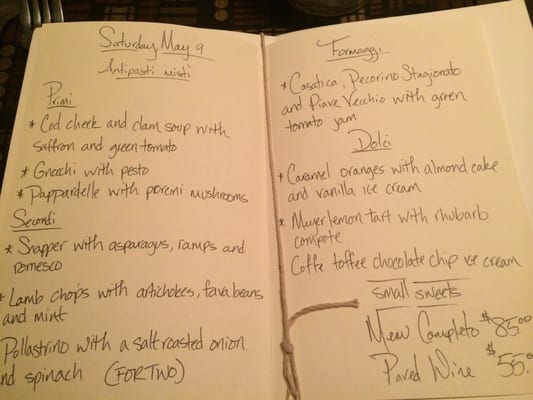 Saturday May 9
Antipasti misti
Primi
* Cod cheek and clam soup with
saffron and green tomato
* Gnocchi with pesto
* Pappardelle with porcini mushrooms
Secondi
* Snapper with asparagus, ramps and
romesco
* Lamb chops with artichokes, fava beans
and mint
Pollastrino with a salt roasted onion
and spinach (FOR TWO)
Formaggi
* Casatica, Pecorino Stagionato
and Piave Vecchio with green
tomato jam
Dolci
* Caramel oranges with almond cake
and vanilla ice cream
* Meyer lemon tart with rhubarb
compote
Coffe toffee chocolate chip ice cream
small sweets
Menu Completo $85.00
Paired Wine $55.00